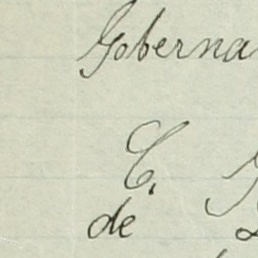 Goberna
C.
de